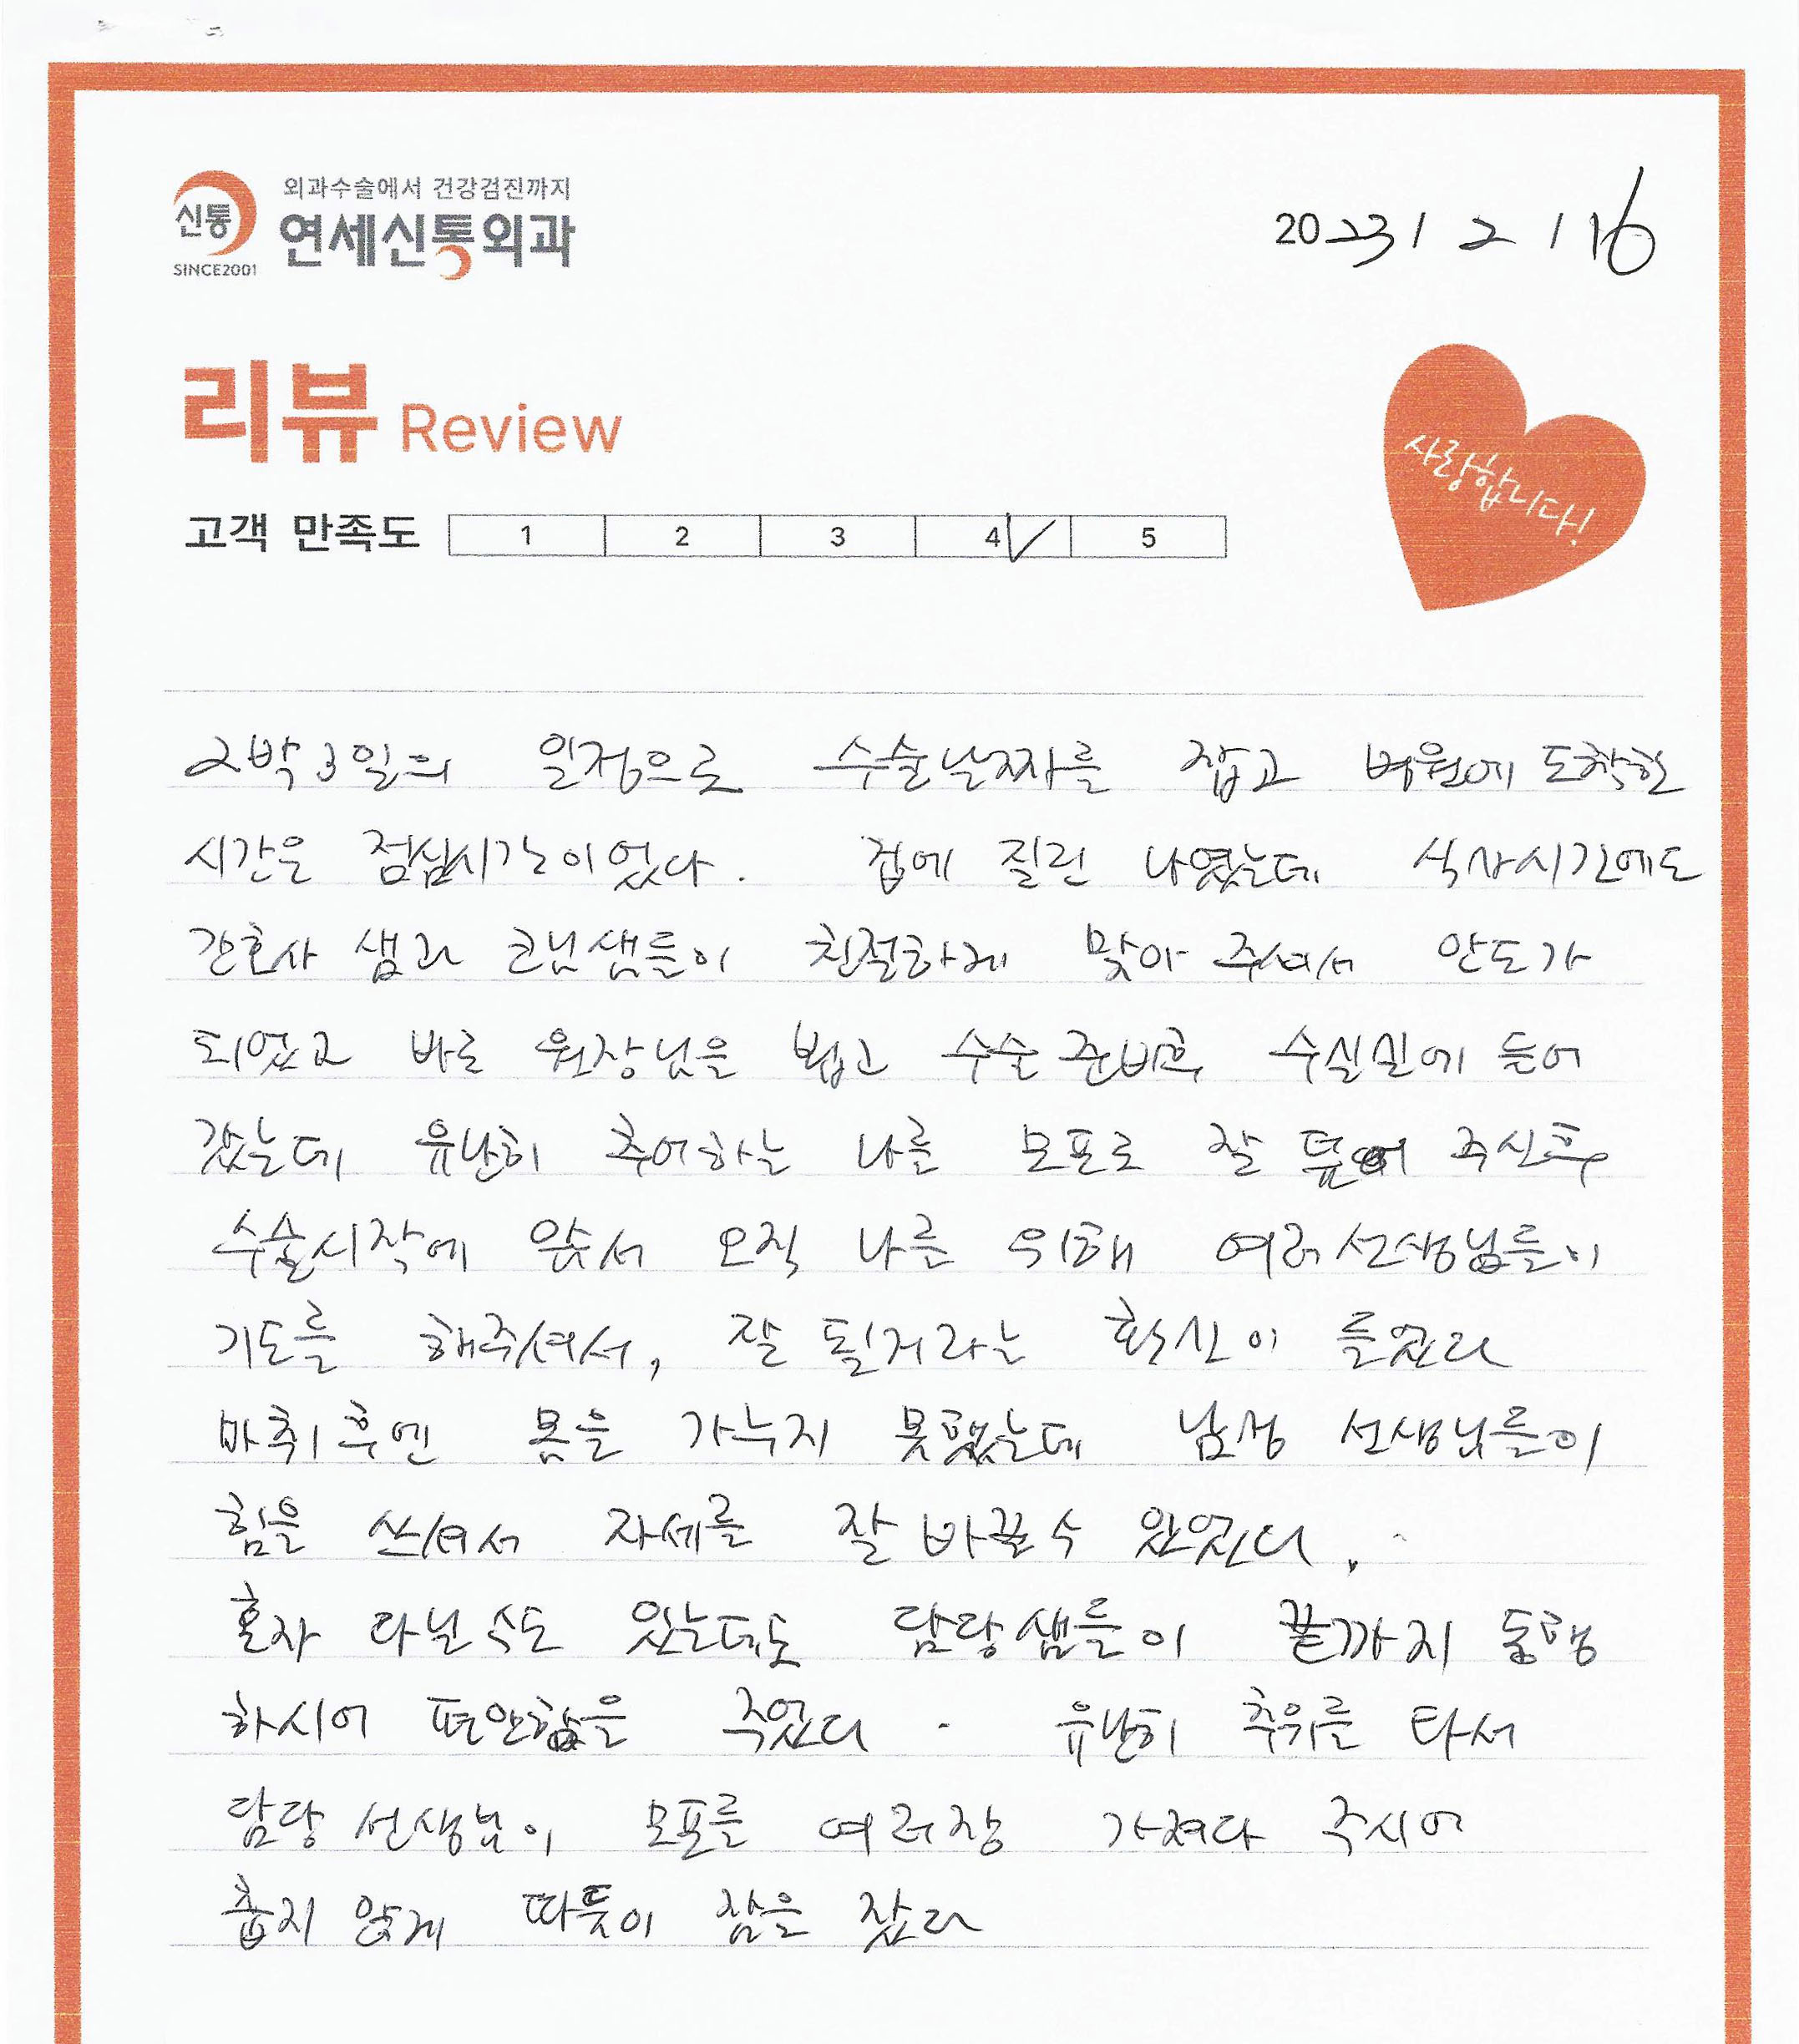 신통
SINCE2001
외과수술에서 건강검진까지
연세신통외과
2023 / 2 / 16
리뷰 Review
사랑합니다!
고객 만족도 1 2 3 4 5
2박3일의 일정으로 수술날짜를 잡고 병원에 도착한
시간은 점심시간이었다. 겁에 질린 나였는데 식사시간에도
간호사 샘과 코닝샘들이 친절하게 맞아 주셔서 안도가
되었고 바로 원장님을 뵙고 수술 준비후 수실실에 들어
갔는데 유난히 추어하는 나를 모포로 잘 덮어 주신후
수술시작에 앞서 오직 나를 위해 여러선생님들이
기도를 해주셔서, 잘 될거라는 확신이 들었다
마취후엔 몸을 가누지 못했는데 남성 선생님들이
힘을 쓰셔서 자세를 잘 바꿀수 있었다.
혼자 다닐수도 있는데도 담당샘들이 끝까지 동행
하시어 편안함을 주었다. 유난히 추위를 타서
담당 선생님이 모포를 여러장 가져다 주시어
춥지 않게 따뜻이 잠을 잤다